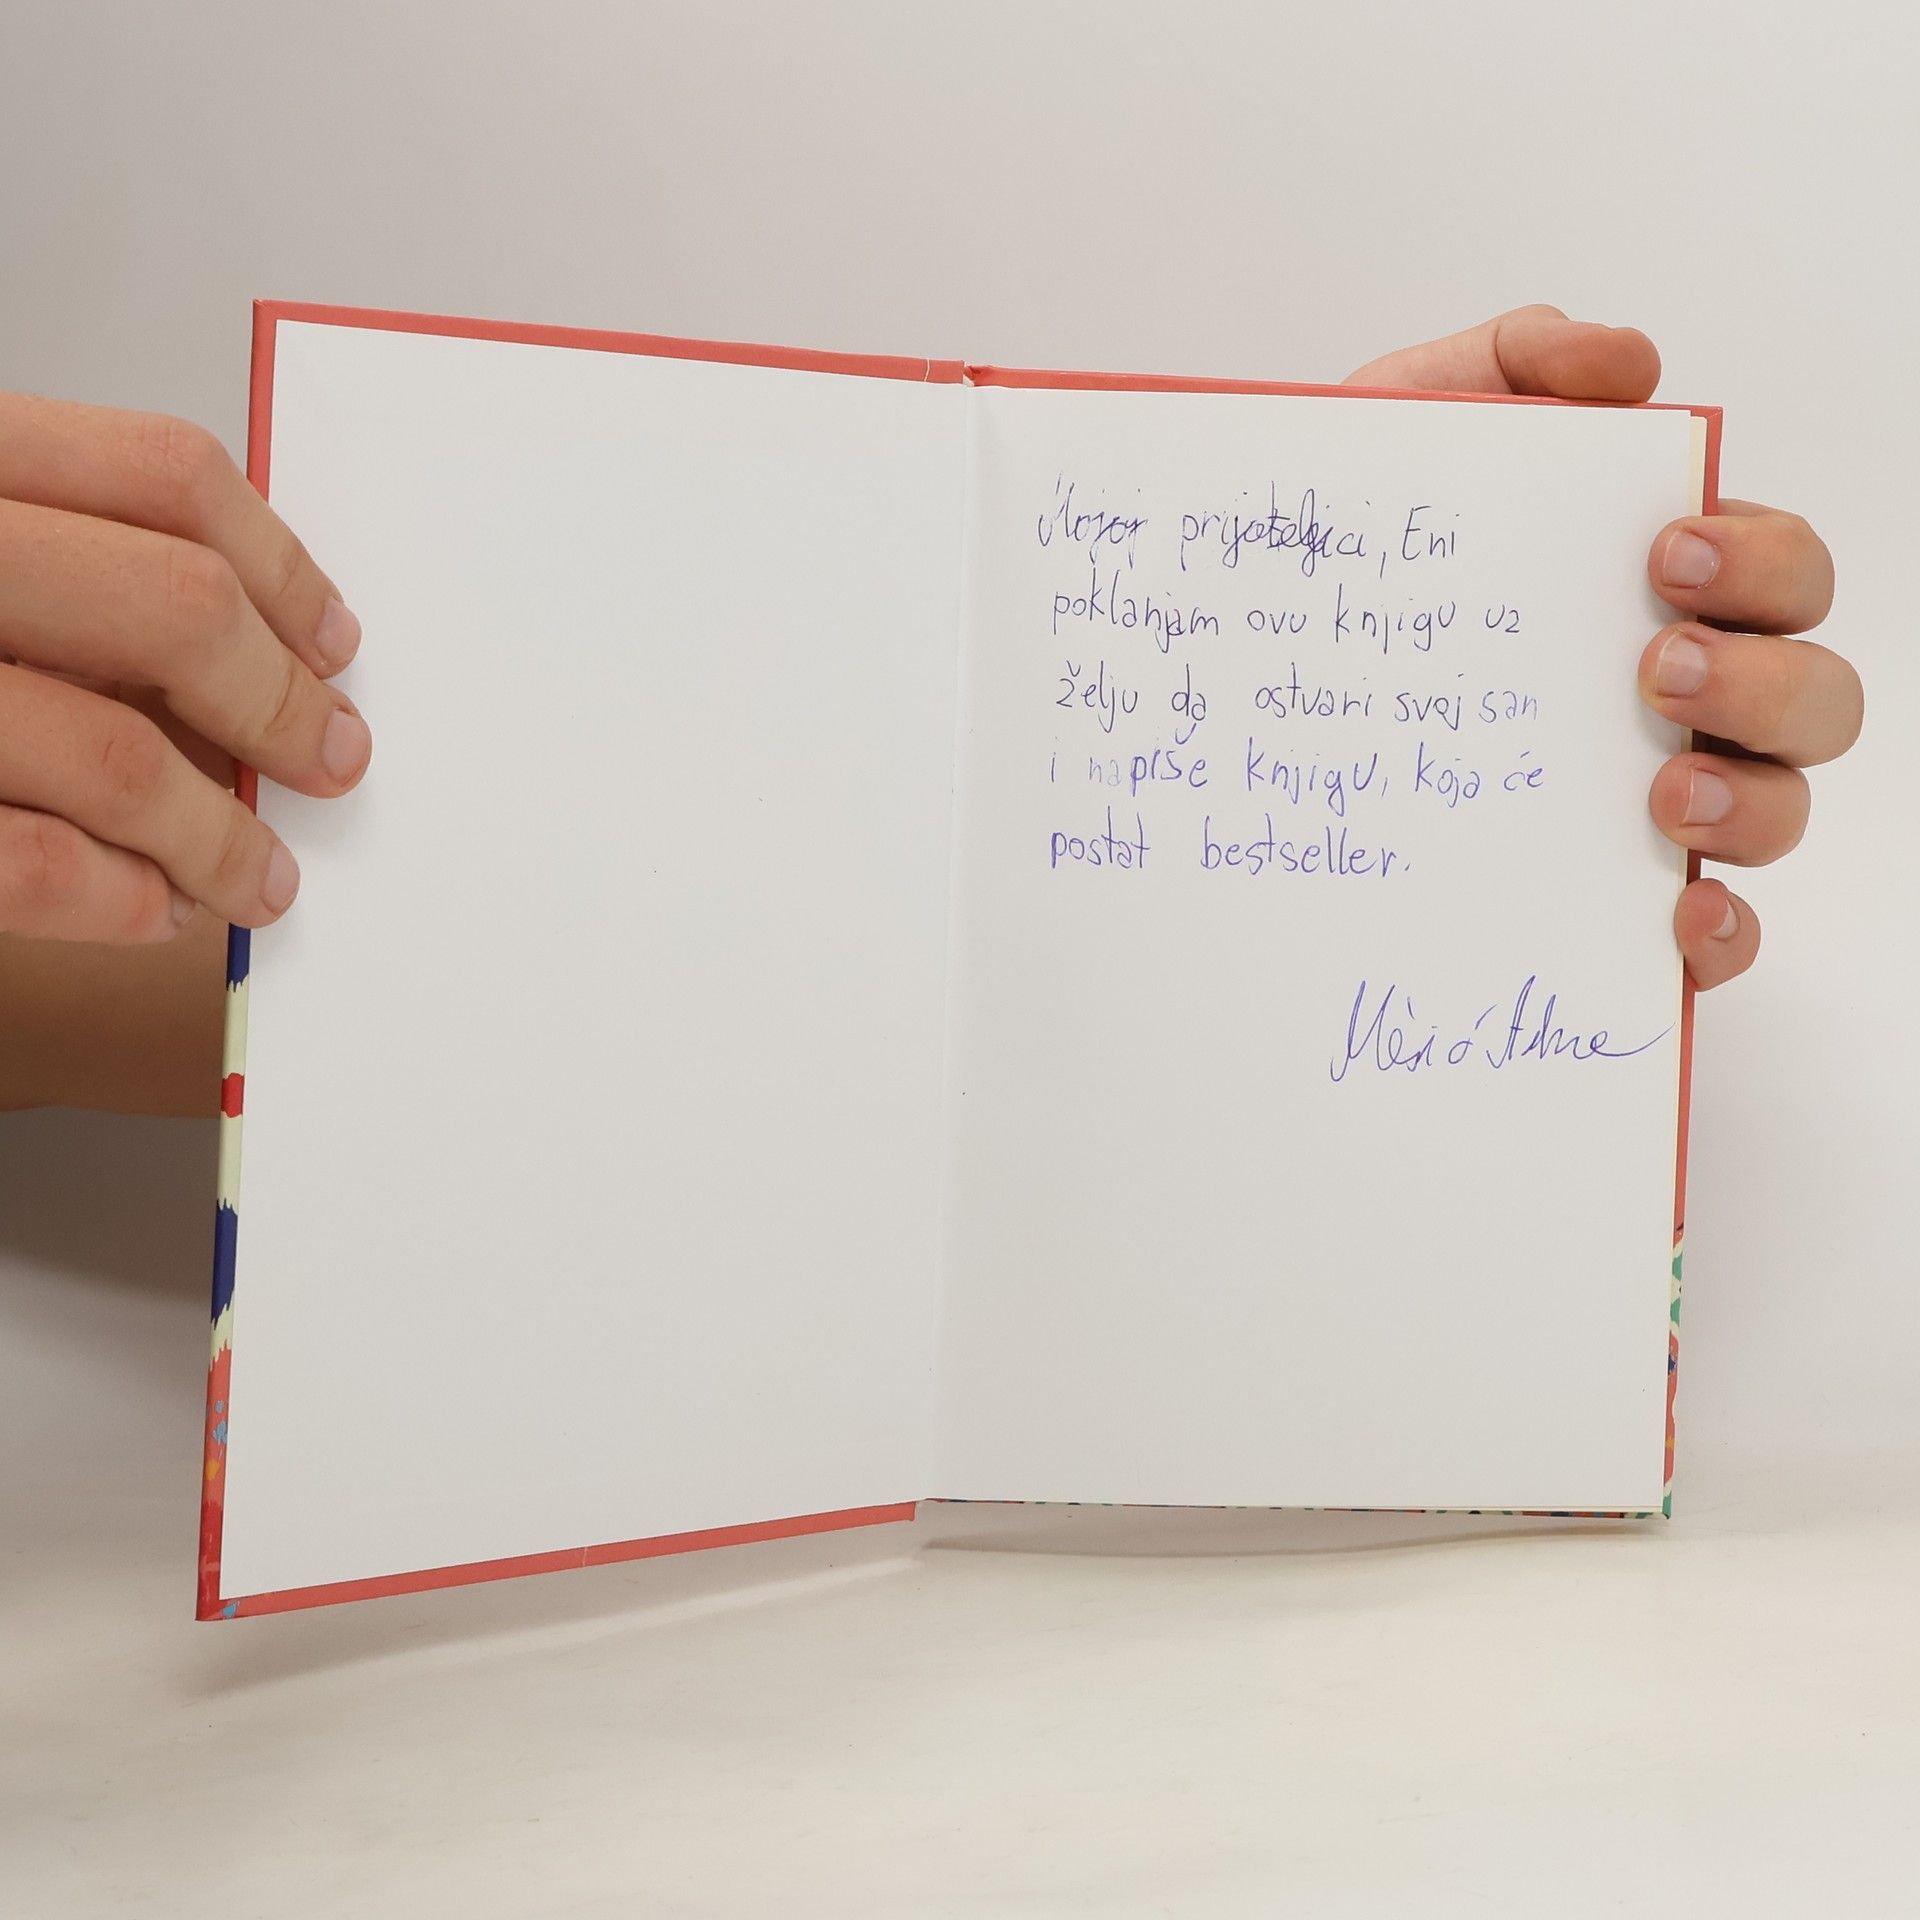 Mojoj prijateljici, Eni
poklanjam ovu knjigu uz
želju da ostvari svoj san
i napiše knjigu, koja će
postat bestseller.